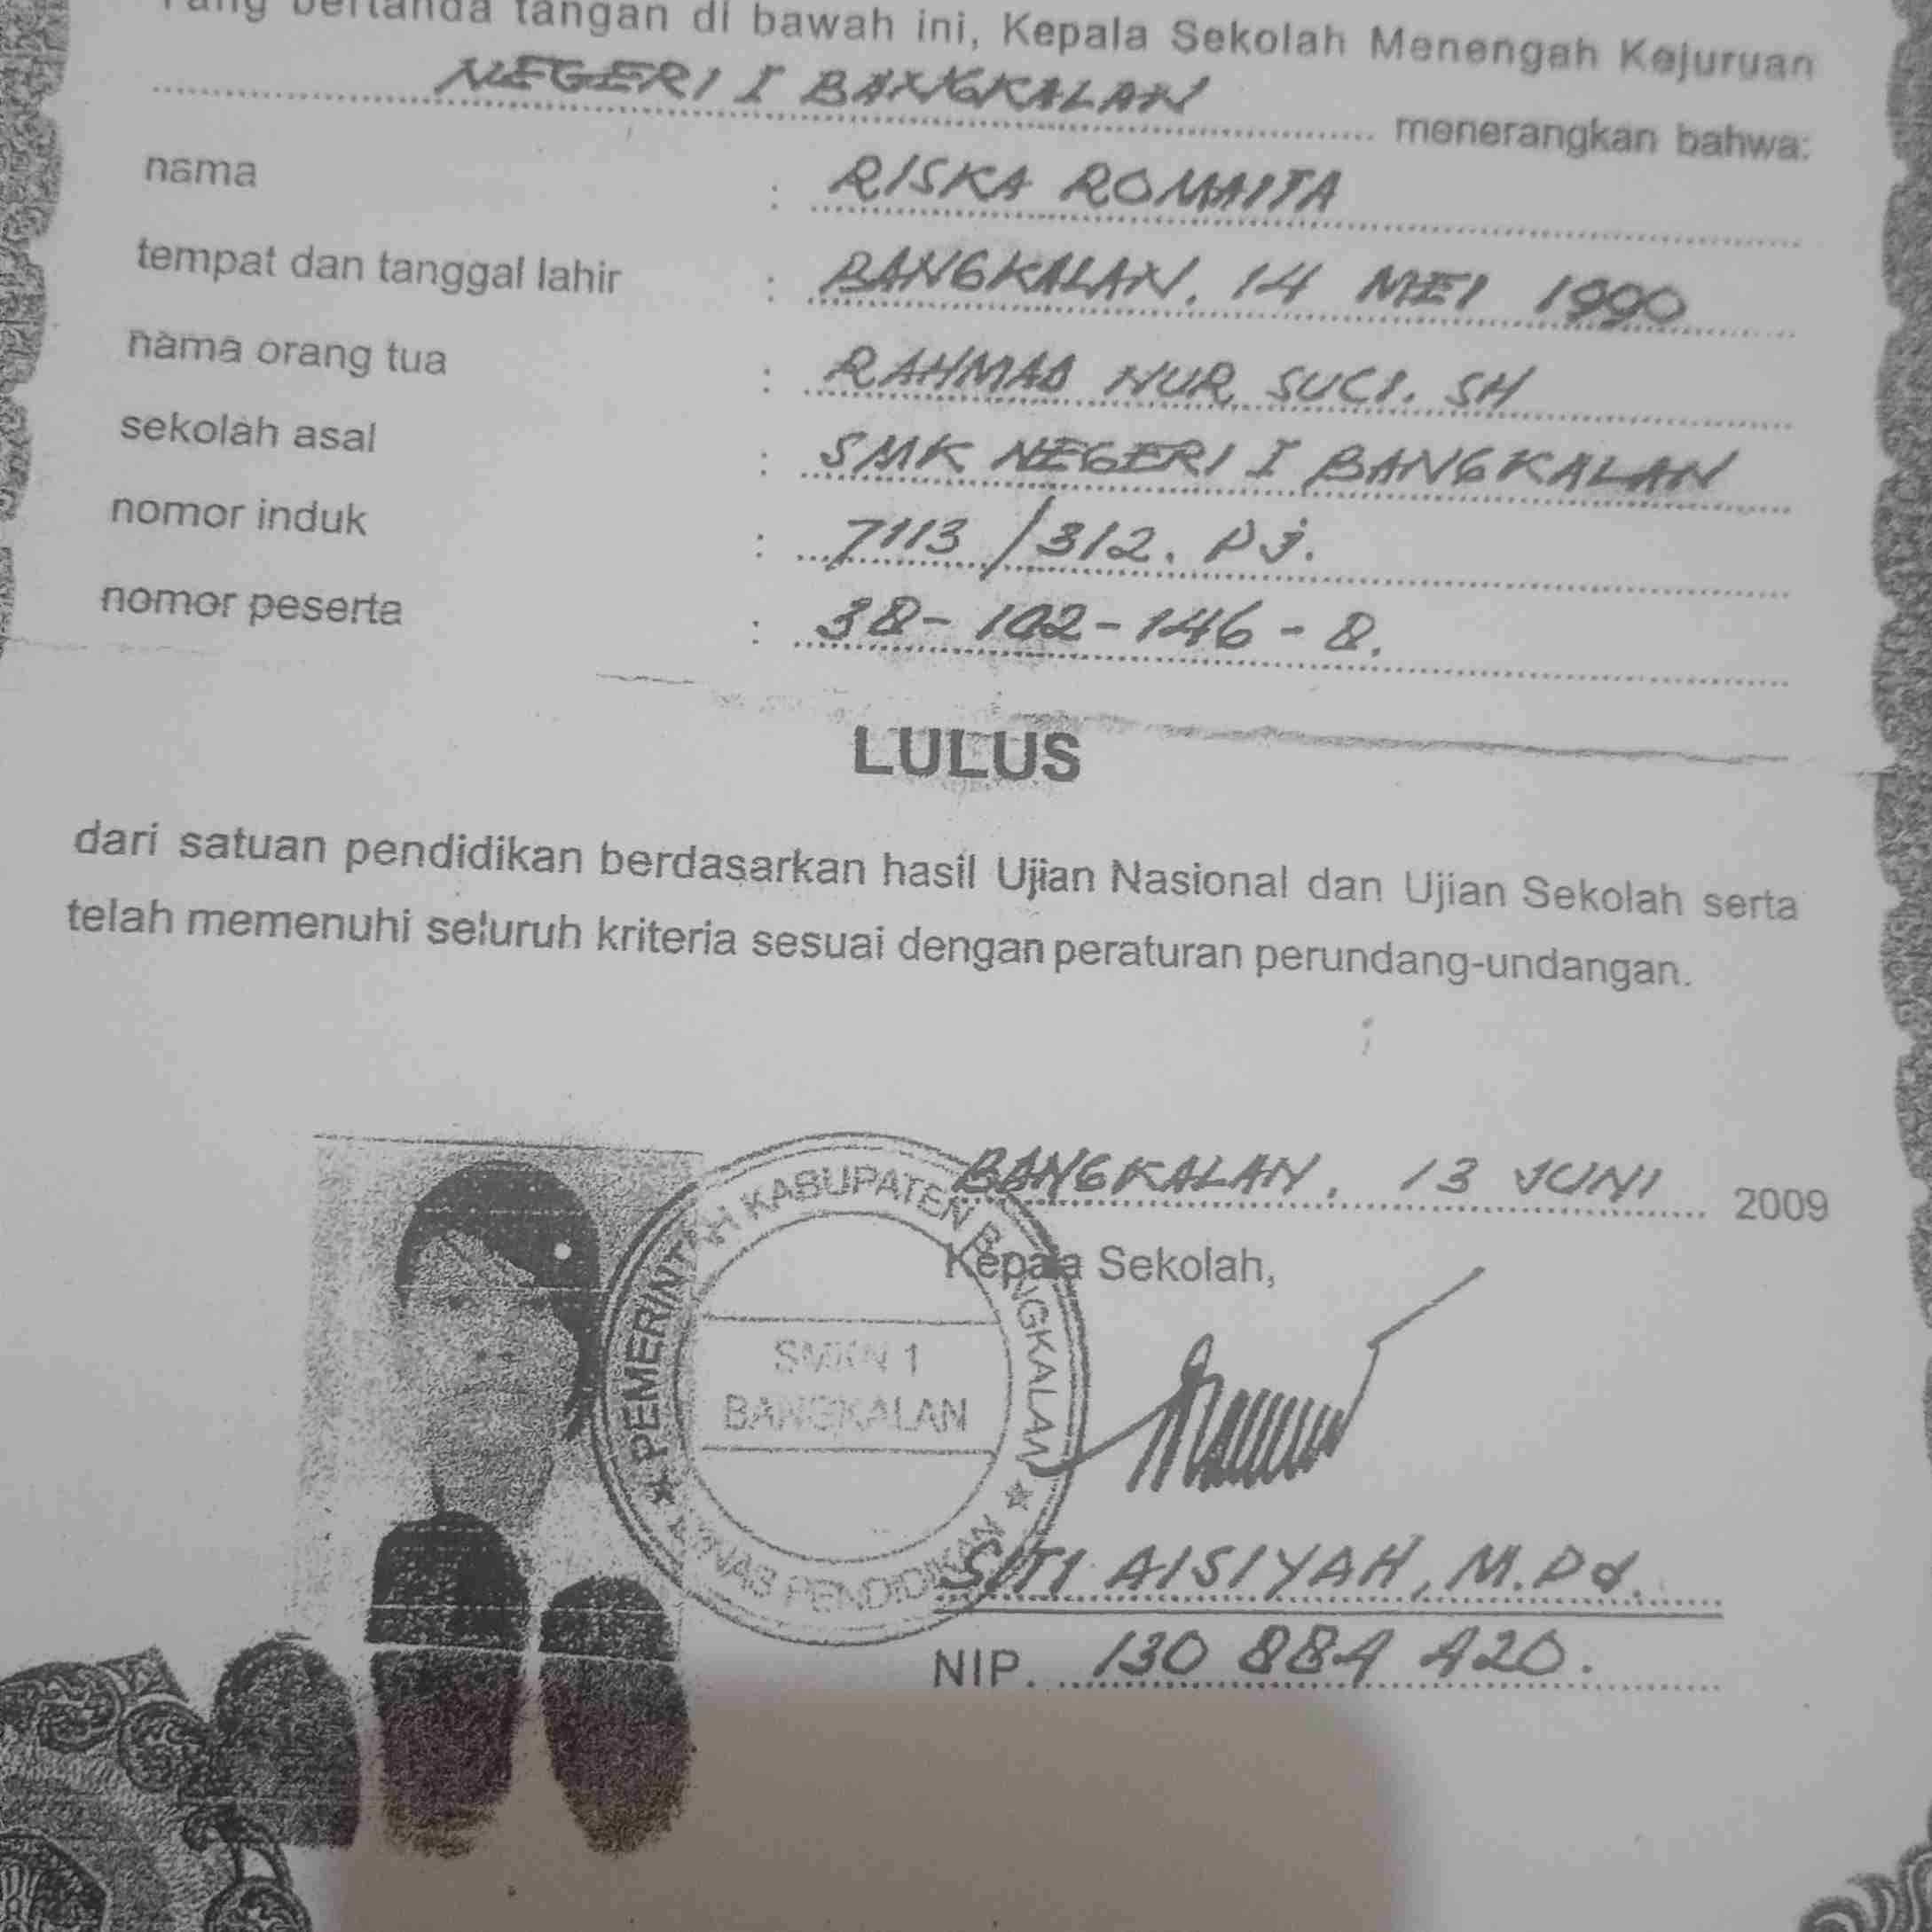 Yang bertanda tangan di bawah ini, Kepala Sekolah Menengah Kejuruan
NEGERI I BANGKALAN menerangkan bahwa:
nama : RISKA ROMAITA
tempat dan tanggal lahir : BANGKALAN, 14 MEI 1990
nama orang tua : RAHMAD NUR SUCI. SH
sekolah asal : SMK NEGERI I BANGKALAN
nomor induk : 7113 / 312. Pj.
nomor peserta : 38-102-146-8.
LULUS
dari satuan pendidikan berdasarkan hasil Ujian Nasional dan Ujian Sekolah serta
telah memenuhi seluruh kriteria sesuai dengan peraturan perundang-undangan.
BANGKALAN, 13 JUNI 2009
Kepala Sekolah,
PEMERINTAH KABUPATEN BANGKALAN
SMKN 1
BANGKALAN
DINAS PENDIDIKAN
SITI AISIYAH, M.Pd.
NIP. 130 884 420.